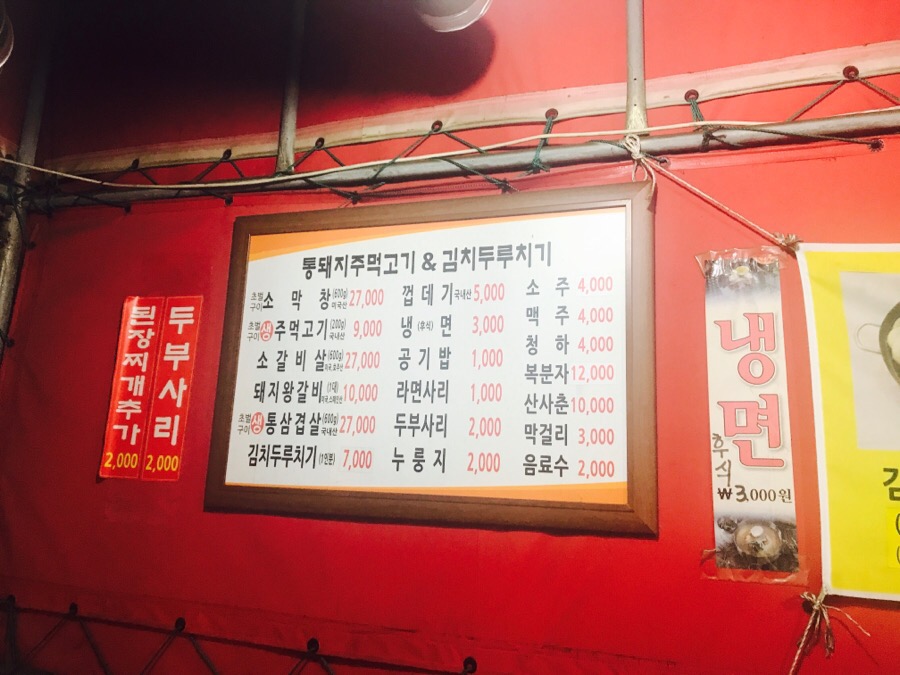 통돼지주먹고기 & 김치두루치기
초벌구이 소막창 (600g) 미국산 27,000
초벌구이 생 주먹고기 (200g) 국내산 9,000
소갈비살 (600g) 미국,호주산 27,000
돼지왕갈비 (1대) 10,000
초벌구이 생 통삼겹살 (600g) 국내산 27,000
김치두루치기 (1인분) 7,000
껍데기 국내산 5,000
냉(후식)면 3,000
공기밥 1,000
라면사리 1,000
두부사리 2,000
누룽지 2,000
소주 4,000
맥주 4,000
청하 4,000
복분자 12,000
산사춘 10,000
막걸리 3,000
음료수 2,000
된장찌개추가 2,000
두부사리 2,000
냉면
후식
₩3,000원
김